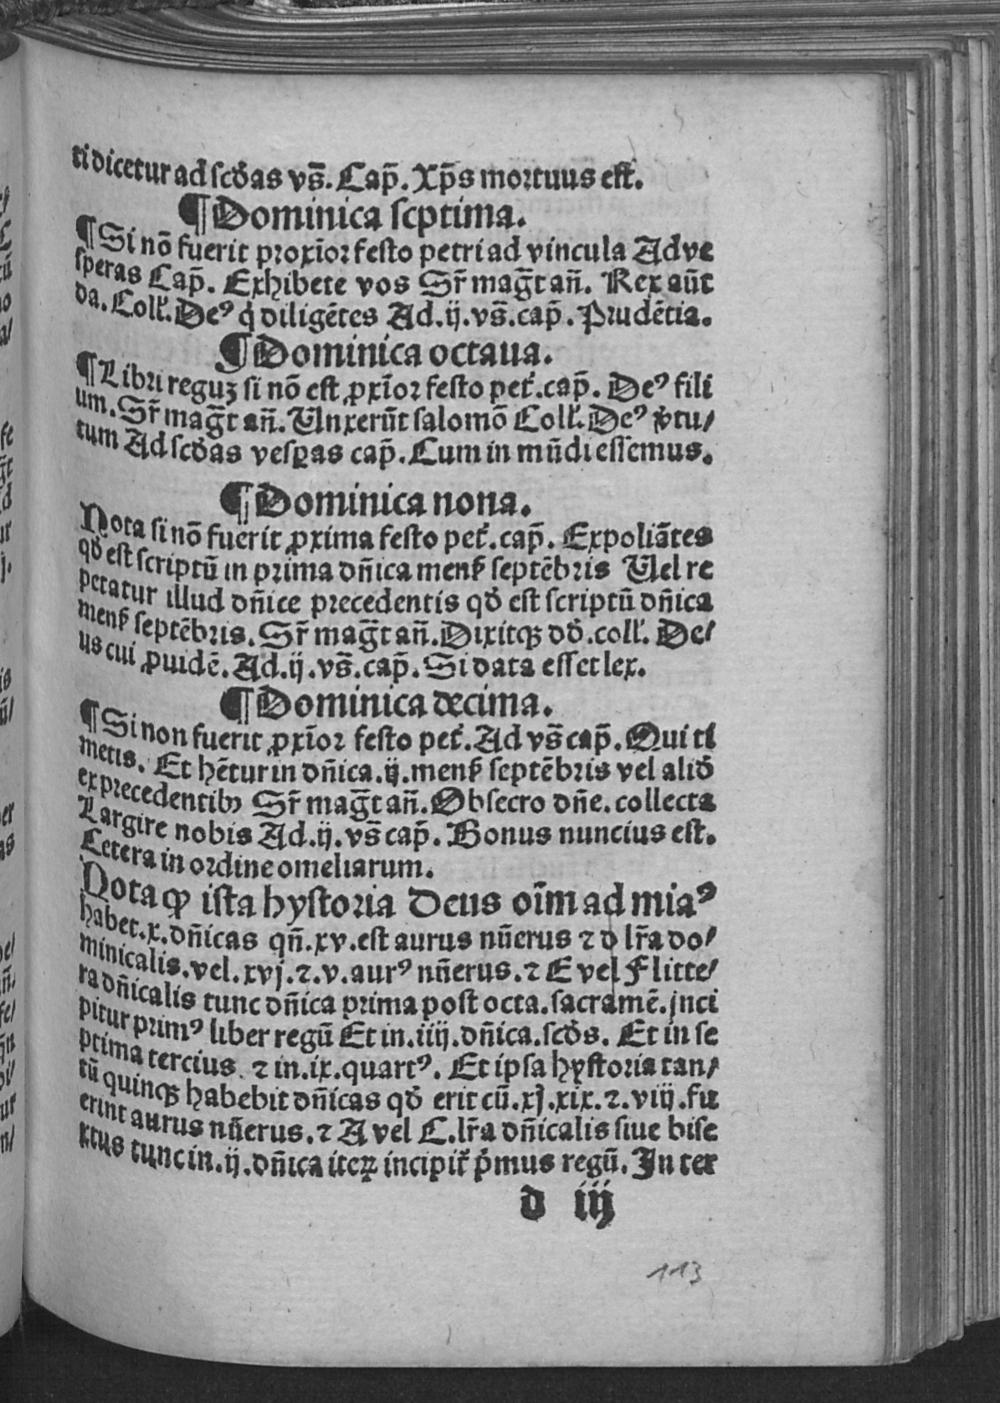 ti dicetur ad scđas vs̄. Cap̄. Xp̄s mortuus est.
¶ Dominica septima.
¶ Si nō fuerit proxīor festo petri ad vincula Ad ve
speras Cap̄. Exhibete vos Sr̄ maḡt an̄. Rex aūt
da. Coll'. Deꝰ q̇ diligētes Ad.ij.vs̄.cap̄. Prudētia.
¶ Dominica octaua.
¶ Libri reguꝫ si nō est ꝓxīor festo pet̉.cap̄. Deꝰ fili
um. Sr̄ maḡt an̄. Unxerūt salomō Coll'. Deꝰ v̉tu⸗
tum Ad scđas vesꝑas cap̄. Cum in mūdi essemus.
¶ Dominica nona.
Nota si nō fuerit ꝓxima festo pet̉.cap̄. Expoliātes
qđ est scriptū in prima dn̄ica mens̉ septēbris Uel re
petatur illud dn̄ice precedentis qđ est scriptū dn̄ica
mens̉ septēbris. Sr̄ maḡt an̄. Dixitqꝫ dd̄.coll'. De⸗
us cui ꝓuidē. Ad.ij.vs̄.cap̄. Si data esset lex.
¶ Dominica decima.
¶ Si non fuerit ꝓxīor festo pet̉. Ad vs̄ cap̄. Qui ti
metis. Et hētur in dn̄ica.ij.mens̉ septēbris vel aliđ
ex precedentibꝰ Sr̄ maḡt an̄. Obsecro dn̄e.collecta
Largire nobis Ad.ij.vs̄ cap̄. Bonus nuncius est.
Cetera in ordine omeliarum.
Nota ꝙ ista hystoria Deus oīm ad miaꝰ
habet.x.dn̄icas qn̄.xv.est aurus nūerus ⁊ d lr̄a do⸗
minicalis.vel.xvj.⁊.v.aurꝰ nūerus.⁊ E vel F litte⸗
ra dn̄icalis tunc dn̄ica prima post octa.sacramē.jnci
pitur primꝰ liber regū Et in.iiij.dn̄ica.scđs. Et in se
ptima tercius. ⁊ in.ix.quartꝰ. Et ipsa hystoria tan⸗
tū quinqꝫ habebit dn̄icas qđ erit cū.xj.xix.⁊.viij.fu
erint aurus nūerus.⁊ A vel C.lr̄a dn̄icalis siue bise
xtus tunc in.ij.dn̄ica iteꝝ incipit̉ p̉mus regū. In ter
d iij
113